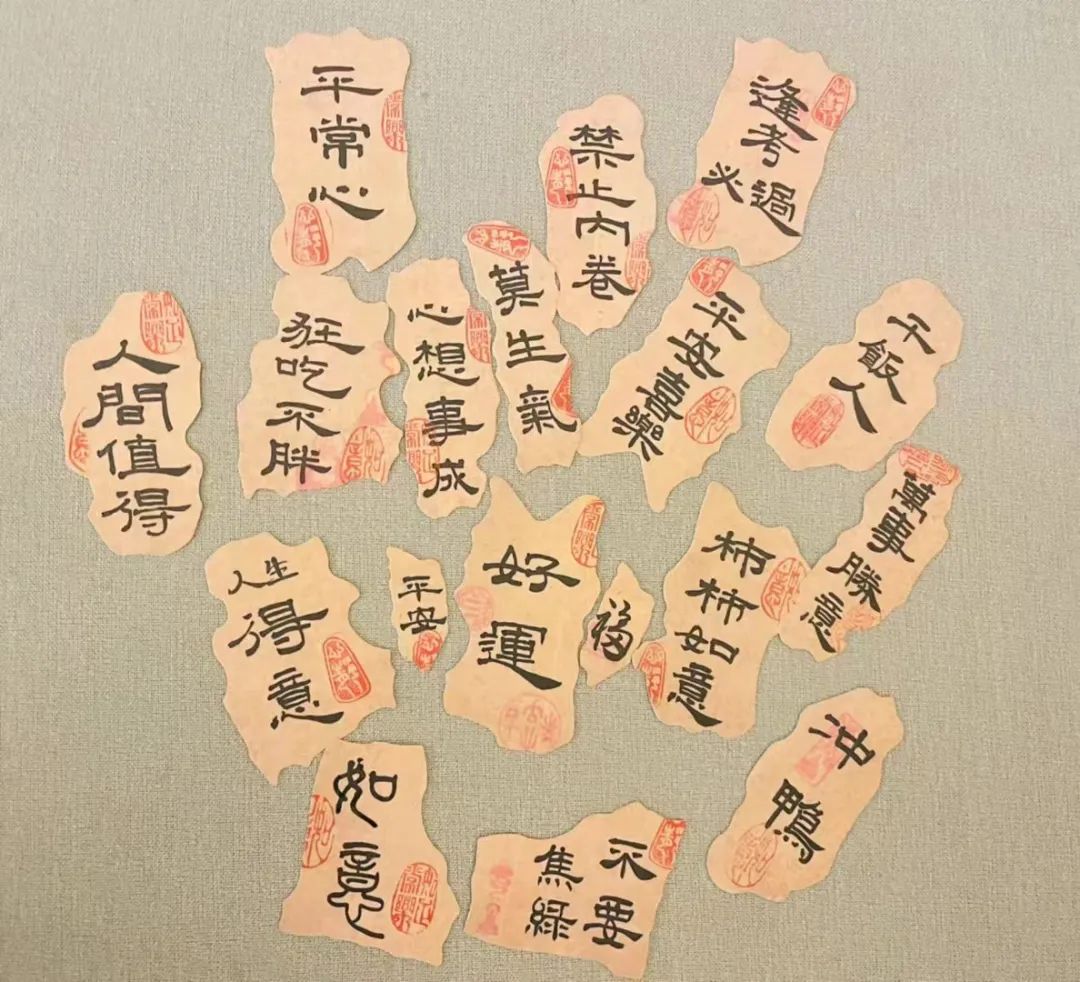 平常心
禁止内卷
逢考必過
人間值得
狂吃不胖
心想事成
莫生氣
平安喜樂
干飯人
萬事勝意
人生
得意
平安
好運
福
柿柿如意
如意
不要
焦綠
冲鴨